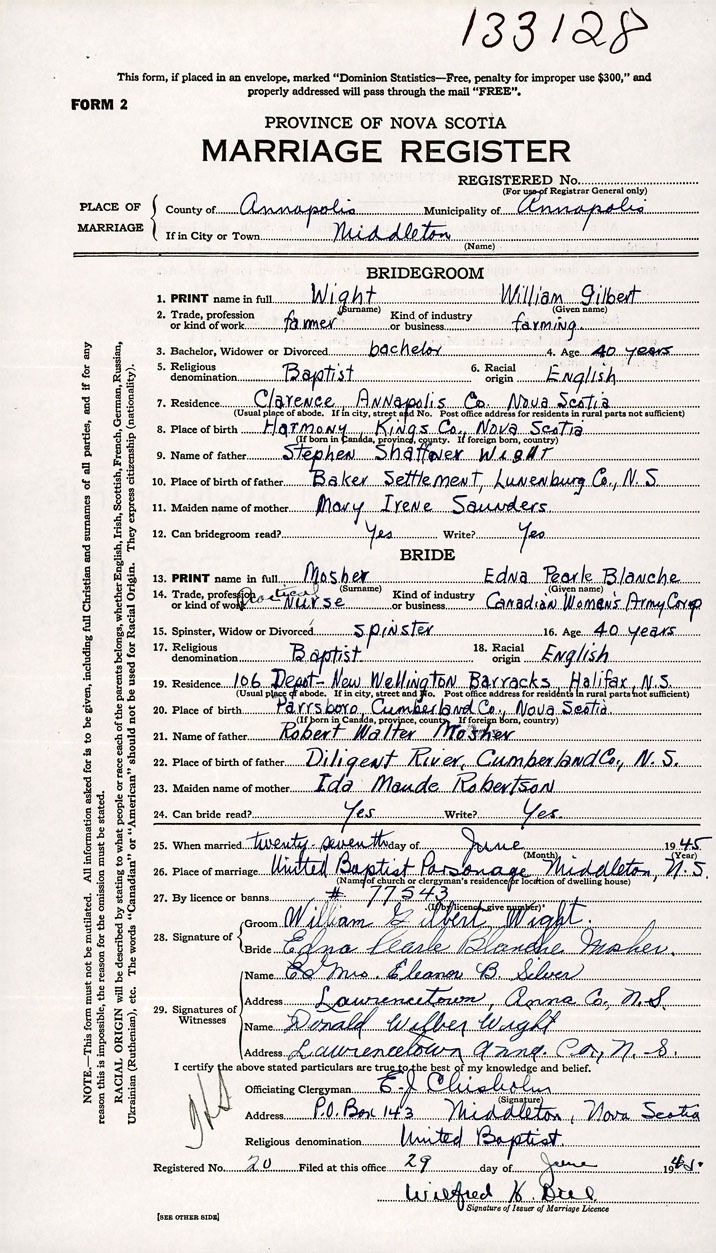 133128
This form, if placed in an envelope, marked "Dominion Statistics—Free, penalty for improper use $300," and
properly addressed will pass through the mail "FREE".
FORM 2
PROVINCE OF NOVA SCOTIA
MARRIAGE REGISTER
REGISTERED No.
(For use of Registrar General only)
PLACE OF MARRIAGE
County of Annapolis Municipality of Annapolis
If in City or Town Middleton
(Name)
BRIDEGROOM
1. PRINT name in full Wight William Gilbert
(Surname) (Given name)
2. Trade, profession or kind of work farmer Kind of industry or business farming.
3. Bachelor, Widower or Divorced bachelor 4. Age 40 years
5. Religious denomination Baptist 6. Racial origin English
7. Residence Clarence, Annapolis Co. Nova Scotia
(Usual place of abode. If in city, street and No. Post office address for residents in rural parts not sufficient)
8. Place of birth Harmony, Kings Co., Nova Scotia
(If born in Canada, province, county. If foreign born, country)
9. Name of father Stephen Shaffner Wight
10. Place of birth of father Baker Settlement, Lunenburg Co., N.S.
11. Maiden name of mother Mary Irene Saunders
12. Can bridegroom read? Yes Write? Yes
BRIDE
13. PRINT name in full Mosher Edna Pearle Blanche
(Surname) (Given name)
14. Trade, profession or kind of work Practical Nurse Kind of industry or business Canadian Women's Army Corp
15. Spinster, Widow or Divorced spinster 16. Age 40 years
17. Religious denomination Baptist 18. Racial origin English
19. Residence 106 Depot- New Wellington Barracks, Halifax, N.S.
(Usual place of abode. If in city, street and No. Post office address for residents in rural parts not sufficient)
20. Place of birth Parrsboro, Cumberland Co., Nova Scotia
(If born in Canada, province, county. If foreign born, country)
21. Name of father Robert Walter Mosher
22. Place of birth of father Diligent River, Cumberland Co., N.S.
23. Maiden name of mother Ida Maude Robertson
24. Can bride read? Yes Write? Yes.
25. When married twenty-seventh day of June 1945
(Month) (Year)
26. Place of marriage United Baptist Parsonage Middleton, N.S.
(Name of church or clergyman's residence or location of dwelling house)
27. By licence or banns # 77543
(If by licence, give number)
28. Signature of
Groom William Gilbert Wight.
Bride Edna Pearle Blanche Mosher.
29. Signatures of Witnesses
Name Mrs. Eleanor B. Silver
Address Lawrencetown, Anna Co., N.S.
Name Donald Wilber Wight
Address Lawrencetown Anna. Co., N.S.
I certify the above stated particulars are true to the best of my knowledge and belief.
Officiating Clergyman E.J Chisholm
(Signature)
Address P.O. Box 143 Middleton, Nova Scotia
Religious denomination United Baptist.
Registered No. 20 Filed at this office 29 day of June 1945.
Wilfred
Signature of Issuer of Marriage Licence
[SEE OTHER SIDE]
NOTE.—This form must not be mutilated. All information asked for is to be given, including full Christian and surnames of all parties, and if for any
reason this is impossible, the reason for the omission must be stated.
RACIAL ORIGIN will be described by stating to what people or race each of the parents belongs, whether English, Irish, Scottish, French, German, Russian,
Ukrainian (Ruthenian), etc. The words "Canadian" or "American" should not be used for Racial Origin. They express citizenship (nationality).